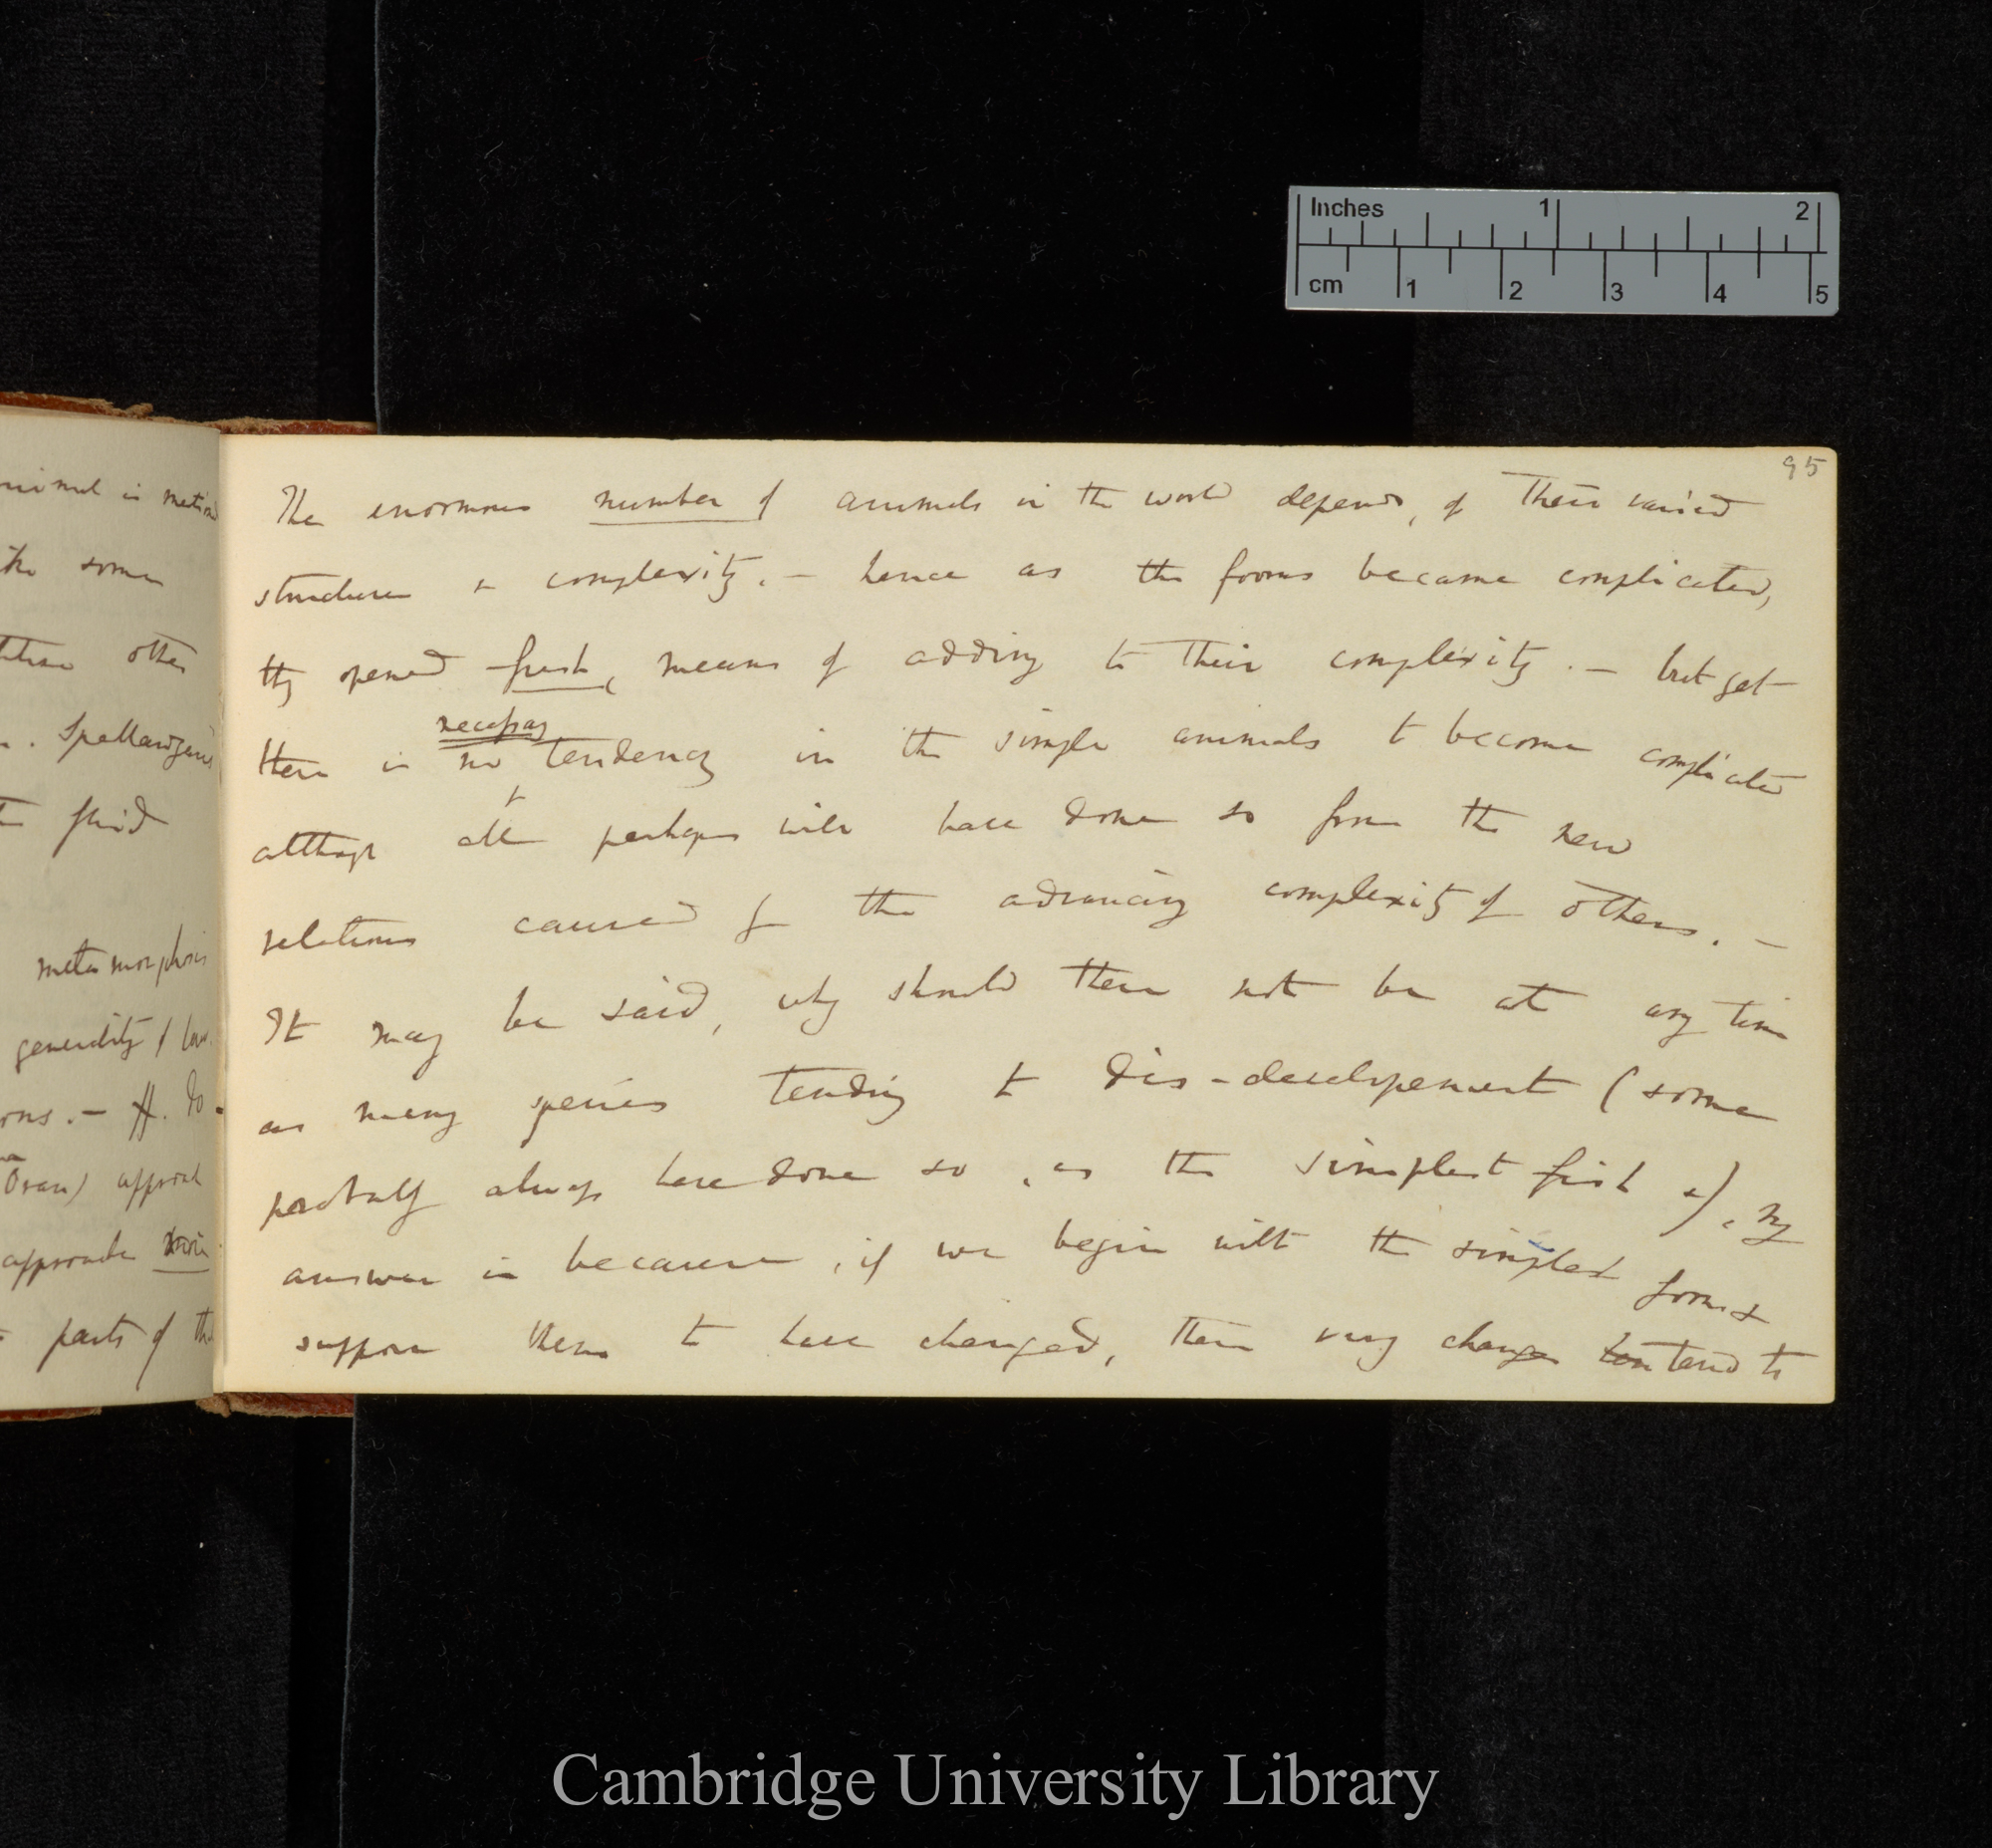 Inches 1 2
cm 1 2 3 4 5
95
The enormous number of animals in the world depends, of their varied
structure & complexity. — hence as the forms became complicated,
they opened fresh, means of adding to their complexity. — but yet
necessary
there is no tendency in the simple animals to become complicated
although all perhaps will have done so from the new
relations caused by the advancing complexity of others. —
It may be said, why should there not be at any time
as many species tending to dis-developement (some
probably always have done so, as the simplest fish), my
answer is because, if we begin with the simplest forms &
suppose them to have changed, their very changes tend to
metamorphosis
some
other
fluid
parts of the
Cambridge University Library